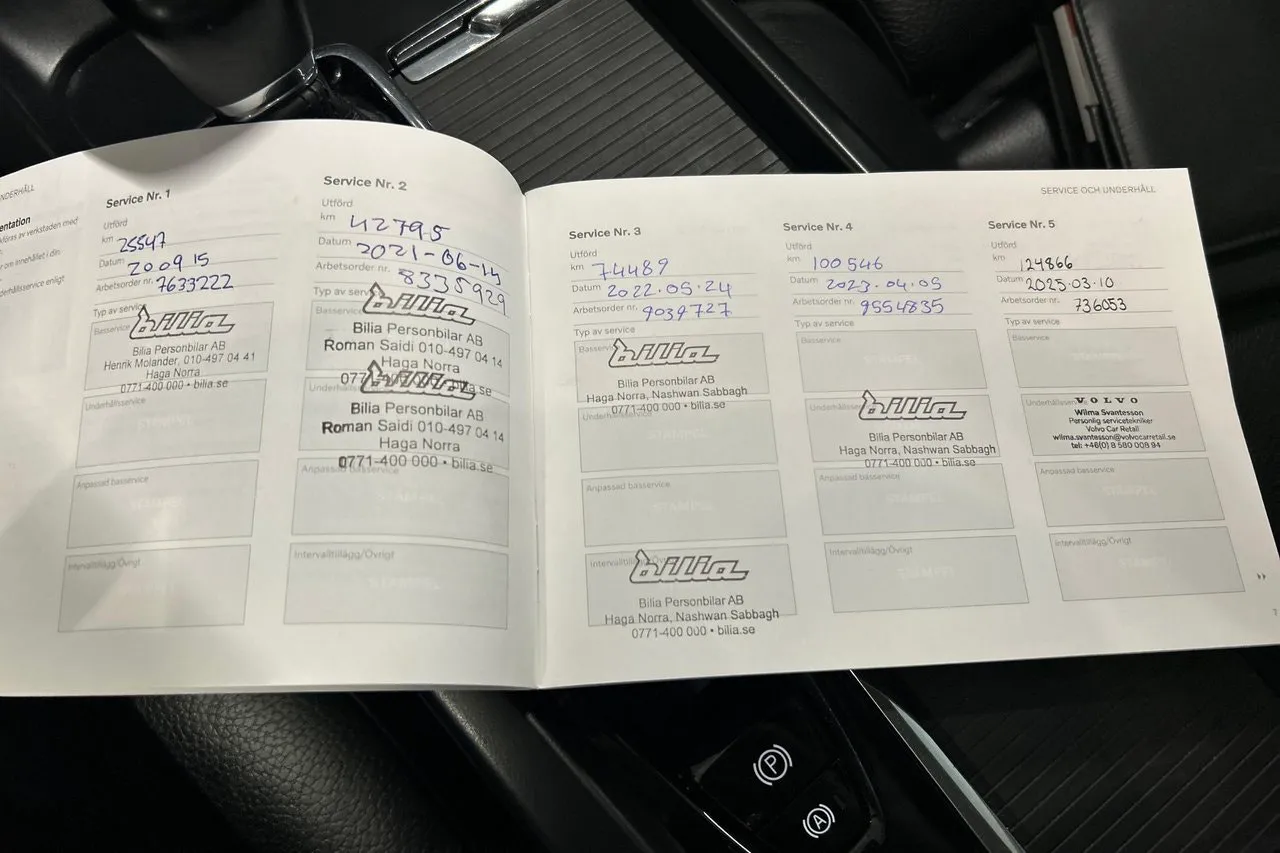 NDERHÅLL
entation
Service Nr. 1
Utförd
km 25547
Datum 20 09 15
Arbetsorder nr. 7633222
Typ av service
Basservice
bilia
Bilia Personbilar AB
Henrik Molander, 010-497 04 41
Haga Norra
0771-400 000 • bilia.se
Underhållsservice
STÄMPEL
Anpassad basservice
STÄMPEL
Intervalltillägg/Övrigt
Service Nr. 2
Utförd
km 42795
Datum 2021-06-14
Arbetsorder nr. 8335929
Typ av serv
Basservice
bilia
Bilia Personbilar AB
Roman Saidi 010-497 04 14
Haga Norra
077
bilia
Bilia Personbilar AB
Roman Saidi 010-497 04 14
Haga Norra
0771-400 000 • bilia.se
Anpassad basservice
STÄMPEL
Intervalltillägg/Övrigt
STÄMPEL
SERVICE OCH UNDERHÅLL
Service Nr. 3
Utförd
km 74489
Datum 2022.05.24
Arbetsorder nr. 9039727
Typ av service
Basserv
bilia
Bilia Personbilar AB
Haga Norra, Nashwan Sabbagh
0771-400 000 • bilia.se
Underhållsservice
STÄMPEL
Anpassad basservice
STÄMPEL
Intervalltillägg/Öv
bilia
Bilia Personbilar AB
Haga Norra, Nashwan Sabbagh
0771-400 000 • bilia.se
Service Nr. 4
Utförd
km 100546
Datum 2023.04.05
Arbetsorder nr. 9554835
Typ av service
Basservice
STÄMPEL
Underhålls
bilia
Bilia Personbilar AB
Haga Norra, Nashwan Sabbagh
0771-400 000 • bilia.se
Anpassad basservice
STÄMPEL
Intervalltillägg/Övrigt
STÄMPEL
Service Nr. 5
Utförd
km 124866
Datum 2025.03.10
Arbetsorder nr. 736053
Typ av service
Basservice
STÄMPEL
Underhållsser
VOLVO
Wilma Svantesson
Personlig servicetekniker
Volvo Car Retail
wilma.svantesson@volvocarretail.se
tel: +46(0) 8 580 008 94
Anpassad basservice
STÄMPEL
Intervalltillägg/Övrigt
P
A